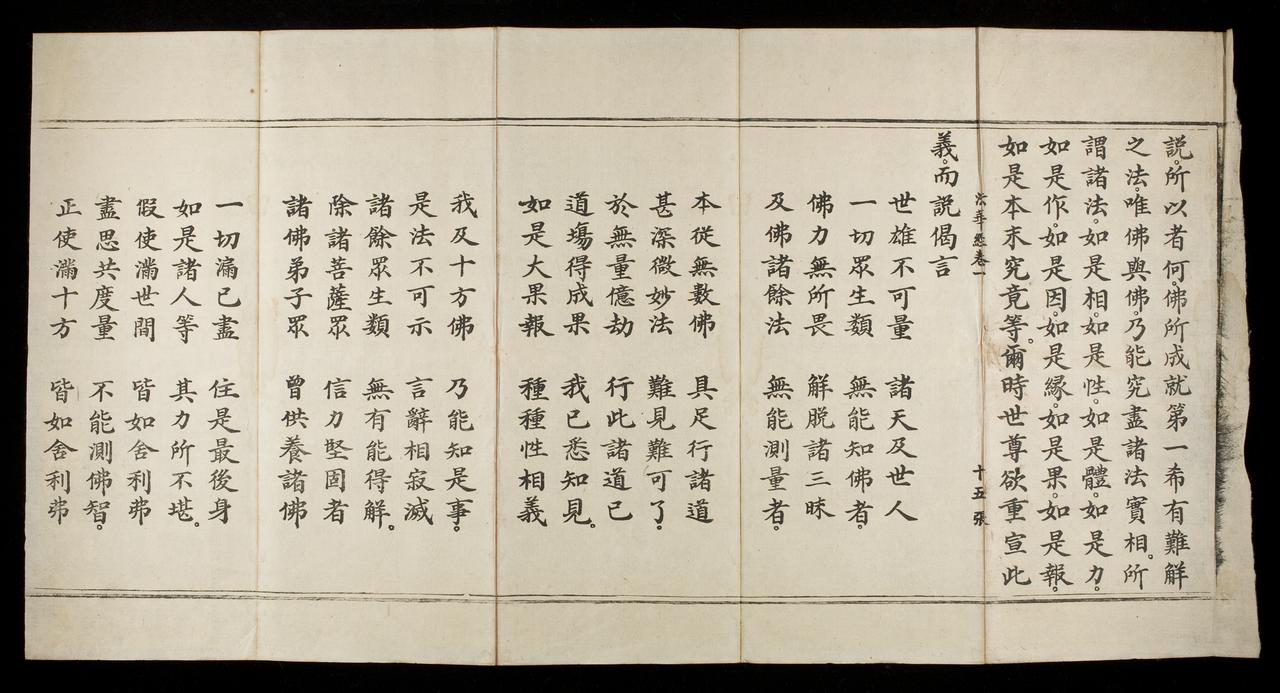 説。所以者何。佛所成就第一希有難解
之法。唯佛與佛。乃能究盡諸法實相。所
謂諸法。如是相。如是性。如是體。如是力。
如是作。如是因。如是緣。如是果。如是報。
如是本末究竟等。爾時世尊欲重宣此
法華經卷一 十五張
義。而説偈言
世雄不可量 諸天及世人
一切眾生類 無能知佛者。
佛力無所畏 解脱諸三昧
及佛諸餘法 無能測量者。
本從無數佛 具足行諸道
甚深微妙法 難見難可了。
於無量億劫 行此諸道已
道塲得成果 我已悉知見。
如是大果報 種種性相義
我及十方佛 乃能知是事。
是法不可示 言辭相寂滅
諸餘眾生類 無有能得解。
除諸菩薩眾 信力堅固者
諸佛弟子眾 曾供養諸佛
一切漏已盡 住是最後身
如是諸人等 其力所不堪。
假使滿世間 皆如舍利弗
盡思共度量 不能測佛智。
正使滿十方 皆如舍利弗